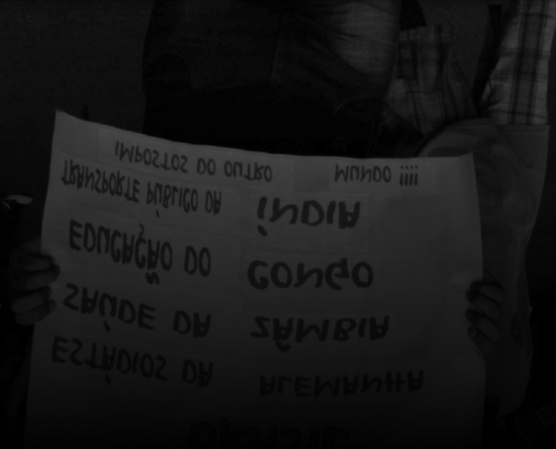 BRASIL
ESTÁDIOS DA ALEMANHA
SAÚDE DA ZÂMBIA
EDUCAÇÃO DO CONGO
TRANSPORTE PÚBLICO DA ÍNDIA
IMPOSTOS DO OUTRO MUNDO !!!!